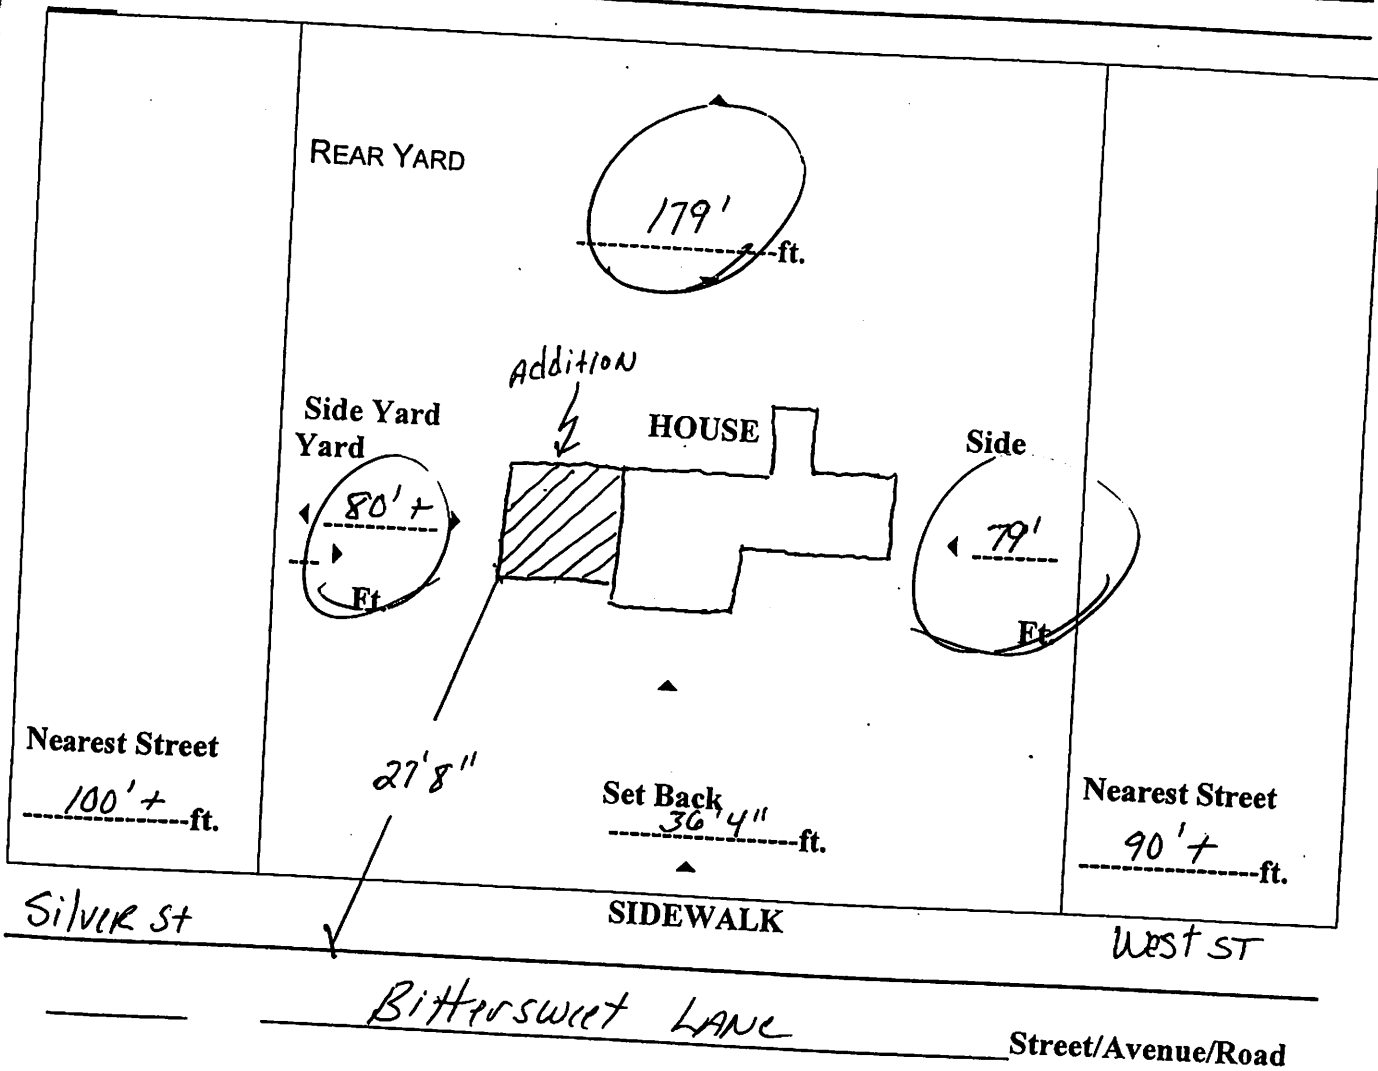 REAR YARD
179'
ft.
Addition
HOUSE
Side Yard
Yard
80'+
Ft
Side
79'
Ft.
27'8"
Nearest Street
100'+ ft.
Set Back
36'4" ft.
Nearest Street
90'+ ft.
Silver St
SIDEWALK
West ST
Bittersweet LANE Street/Avenue/Road